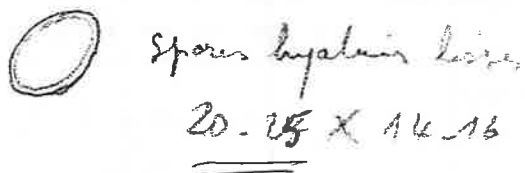 Spores hyalines lisses
20-25 X 14-16